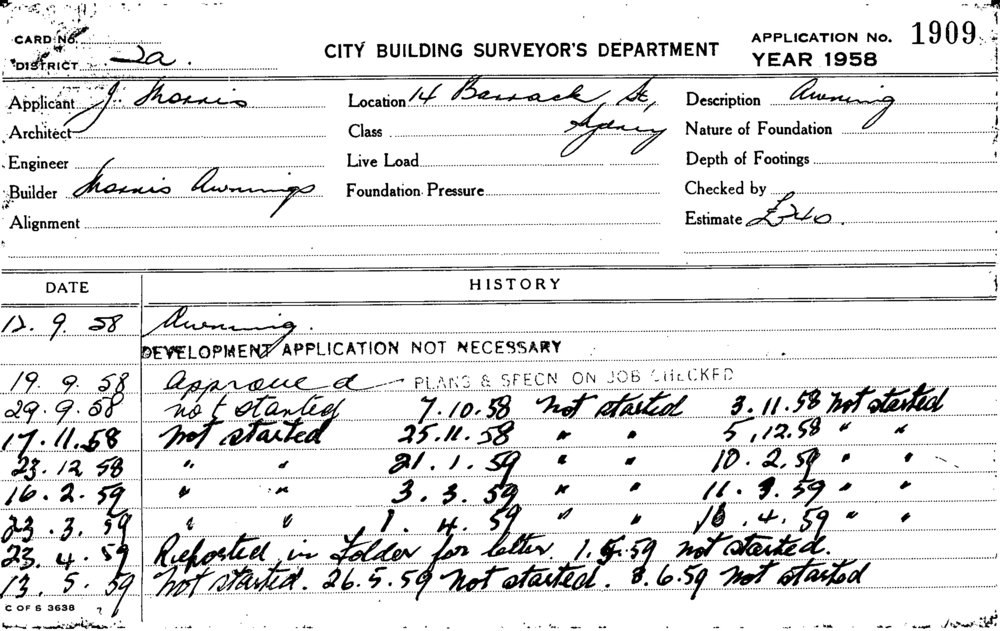 CARD No.
DISTRICT 2a.
CITY BUILDING SURVEYOR'S DEPARTMENT
APPLICATION No. 1909
YEAR 1958
Applicant J. Morris
Location 14 Barrack St,
Sydney
Description Awning
Architect
Class
Nature of Foundation
Engineer
Live Load
Depth of Footings
Builder Morris Awnings
Foundation Pressure
Checked by
Alignment
Estimate £240.
DATE HISTORY
12. 9. 58 Awning.
DEVELOPMENT APPLICATION NOT NECESSARY
19. 9. 58 Approved PLANS & SPECN ON JOB CHECKED
29. 9. 58 not started 7.10.58 Not started 3.11.58 Not started
17.11.58 Not started 25.11.58 " " 5.12.58 " "
23.12 58 " " 21.1.59 " " 10.2.59 " "
16.2.59 " " 3.3.59 " " 11.3.59 " "
23.3.59 " " 1.4.59 " " 10.4.59 " "
23.4.59 Reported in folder for letter. 1.5.59 not started.
13. 5. 59 Not started. 26.5.59 Not started. 8.6.59 Not started
C OF S 3638